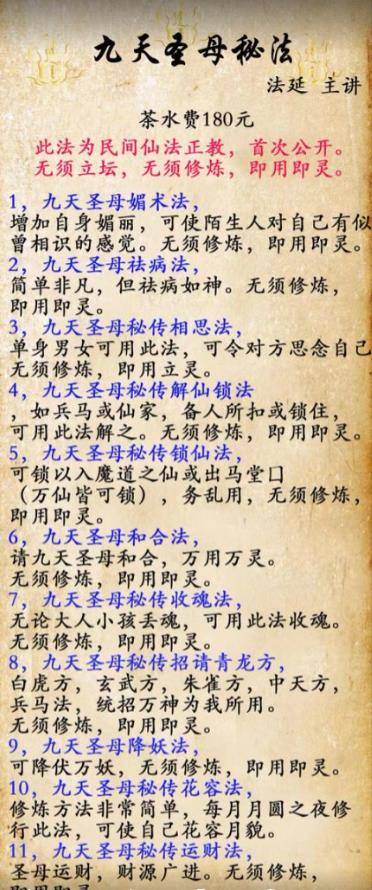 九天圣母秘法
法延 主讲
茶水费180元
此法为民间仙法正教，首次公开。
无须立坛，无须修炼，即用即灵。
1，九天圣母媚术法，
增加自身媚丽，可使陌生人对自己有似
曾相识的感觉。无须修炼，即用即灵。
2，九天圣母祛病法，
简单非凡，但祛病如神。无须修炼，
即用即灵。
3，九天圣母秘传相思法，
单身男女可用此法，可令对方思念自己
无须修炼，即用立灵。
4，九天圣母秘传解仙锁法
，如兵马或仙家，备人所扣或锁住，
可用此法解之。无须修炼，即用即灵。
5，九天圣母秘传锁仙法，
可锁以入魔道之仙或出马堂口
（万仙皆可锁），务乱用，无须修炼，
即用即灵。
6，九天圣母和合法，
请九天圣母和合，万用万灵。
无须修炼，即用即灵。
7，九天圣母秘传收魂法，
无论大人小孩丢魂，可用此法收魂。
无须修炼，即用即灵。
8，九天圣母秘传招请青龙方，
白虎方，玄武方，朱雀方，中天方，
兵马法，统招万神为我所用。
无须修炼，即用即灵。
9，九天圣母降妖法，
可降伏万妖，无须修炼，即用即灵。
10，九天圣母秘传花容法，
修炼方法非常简单，每月月圆之夜修
行此法，可使自己花容月貌。
11，九天圣母秘传运财法，
圣母运财，财源广进。无须修炼，